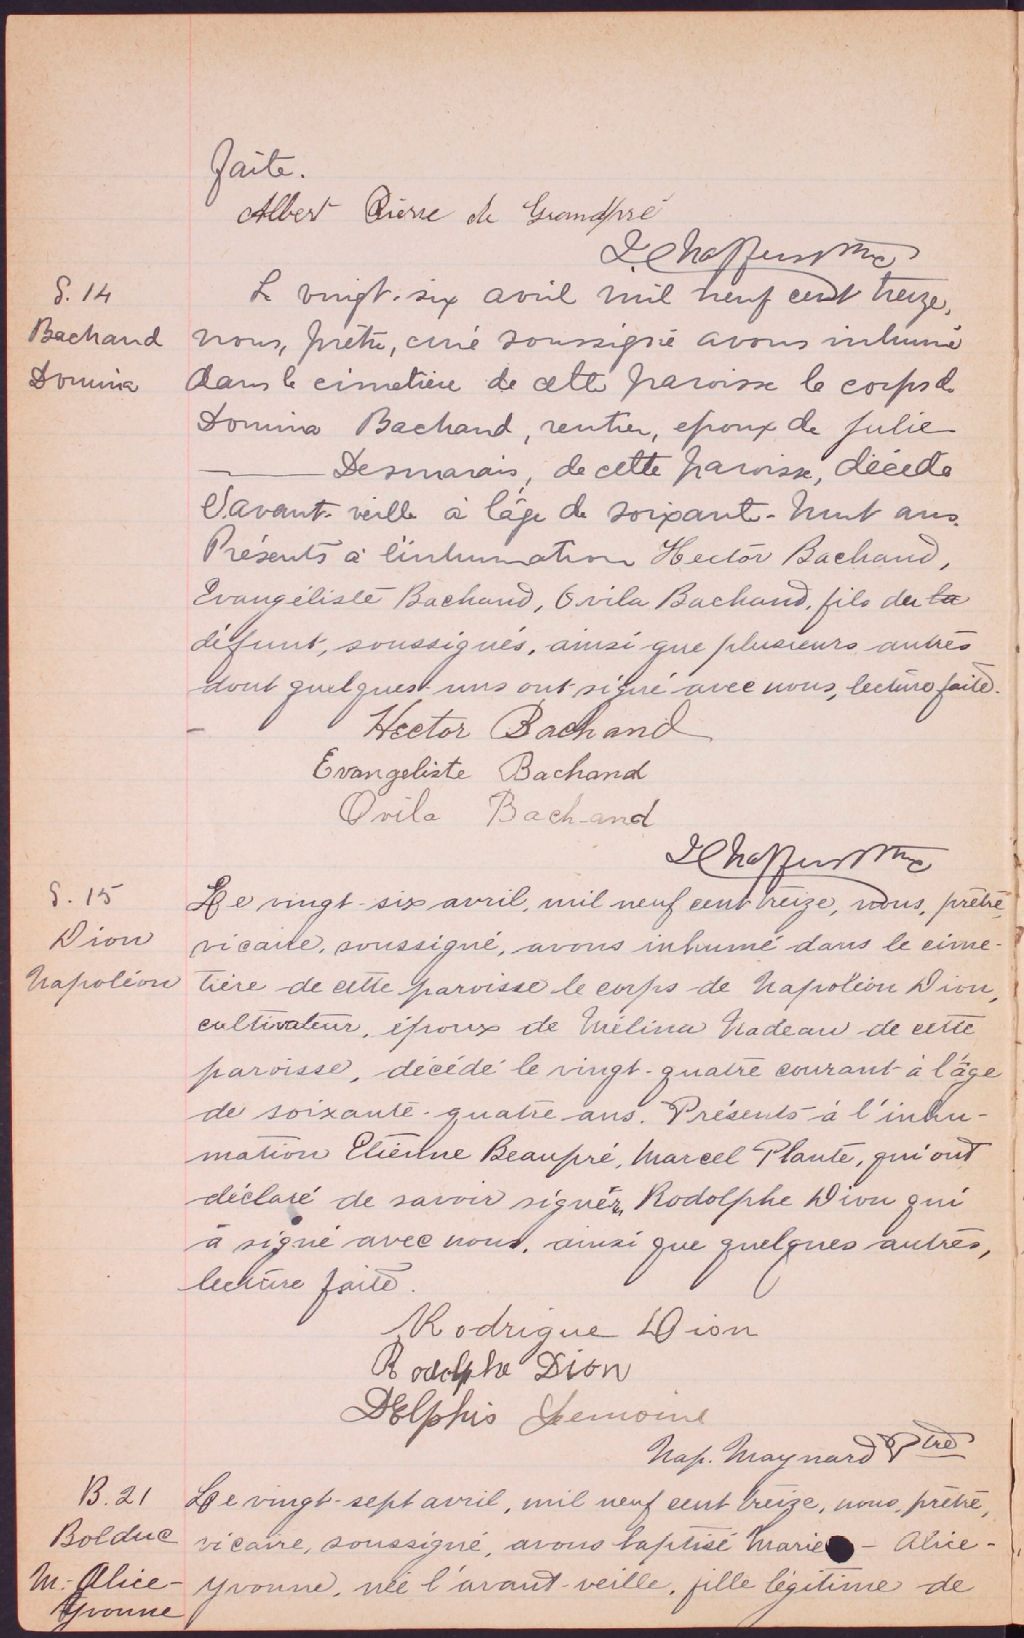 faite.
Albert Pierre de Grandpré
S. 14
Bachand
Domina
Le vingt-six avril mil neuf cent treize,
nous, prêtre, curé soussigné avons inhumé
dans le cimetière de cette paroisse le corps de
Domina Bachand, rentier, epoux de Julie
Desmarais, de cette paroisse, décédé
l'avant-veille à l'âge de soixante-huit ans.
Présents à l'inhumation Hector Bachand,
Evangéliste Bachand, Ovila Bachand, fils du la
défunt, soussignés, ainsi que plusieurs autres
dont quelques-uns ont signé avec nous, lecture faite.
Hector Bachand
Evangeliste Bachand
Ovila Bachand
S. 15
Dion
Napoléon
Le vingt-six avril, mil neuf cent treize, nous, prêtre,
vicaire, soussigné, avons inhumé dans le cime-
tière de cette paroisse le corps de Napoléon Dion,
cultivateur, époux de Mélina Nadeau de cette
paroisse, décédé le vingt-quatre courant à l'âge
de soixante-quatre ans. Présents à l'inhu-
mation Etienne Beaupré, Marcel Plante, qui ont
déclaré de savoir signer, Rodolphe Dion qui
à signé avec nous, ainsi que quelques autres,
lecture faite.
Rodrigue Dion
Rodolphe Dion
Delphis Lemoine
Nap. Maynard Ptre
B. 21
Bolduc
M.-Alice-
Yvonne
Le vingt-sept avril, mil neuf cent treize, nous, prêtre,
vicaire, soussigné, avons baptisé Marie - Alice-
Yvonne, née l'avant-veille, fille légitime de